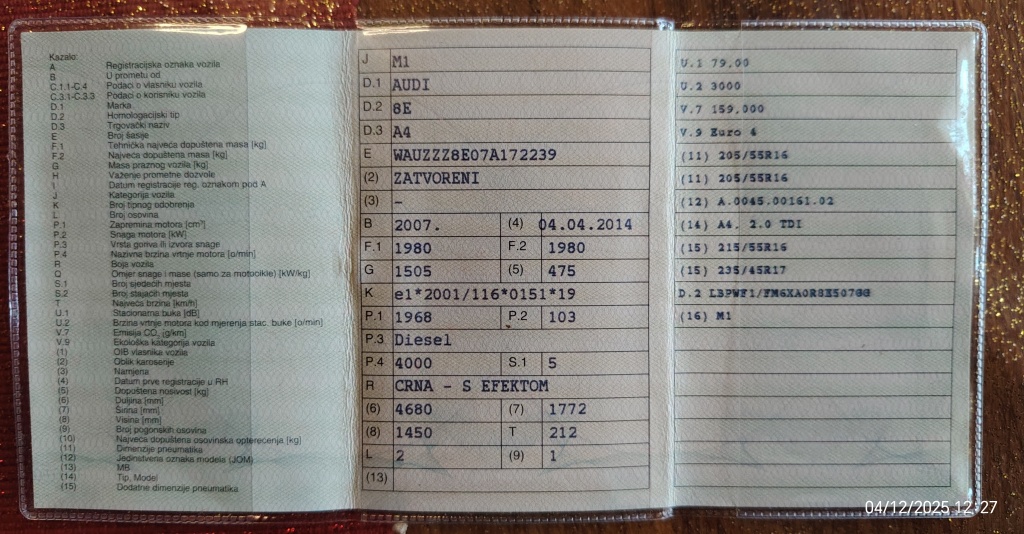 Kazalo:
A Registracijska oznaka vozila
B U prometu od
C.1.1-C.4 Podaci o vlasniku vozila
C.3.1-C.3.3 Podaci o korisniku vozila
D.1 Marka
D.2 Homologacijski tip
D.3 Trgovački naziv
E Broj šasije
F.1 Tehnička najveća dopuštena masa [kg]
F.2 Najveća dopuštena masa [kg]
G Masa praznog vozila [kg]
H Važenje prometne dozvole
I Datum registracije reg. oznakom pod A
J Kategorija vozila
K Broj tipnog odobrenja
L Broj osovina
P.1 Zapremina motora [cm³]
P.2 Snaga motora [kW]
P.3 Vrsta goriva ili izvora snage
P.4 Nazivna brzina vrtnje motora [o/min]
R Boja vozila
Q Omjer snage i mase (samo za motocikle) [kW/kg]
S.1 Broj sjedećih mjesta
S.2 Broj stajaćih mjesta
T Najveća brzina [km/h]
U.1 Stacionarna buka [dB]
U.2 Brzina vrtnje motora kod mjerenja stac. buke [o/min]
V.7 Emisija CO₂ [g/km]
V.9 Ekološka kategorija vozila
(1) OIB vlasnika vozila
(2) Oblik karoserije
(3) Namjena
(4) Datum prve registracije u RH
(5) Dopuštena nosivost [kg]
(6) Duljina [mm]
(7) Širina [mm]
(8) Visina [mm]
(9) Broj pogonskih osovina
(10) Najveća dopuštena osovinska opterećenja [kg]
(11) Dimenzije pneumatika
(12) Jedinstvena oznaka modela (JOM)
(13) MB
(14) Tip, Model
(15) Dodatne dimenzije pneumatika
J M1
D.1 AUDI
D.2 8E
D.3 A4
E WAUZZZ8E07A172239
(2) ZATVORENI
(3) –
B 2007. (4) 04.04.2014
F.1 1980 F.2 1980
G 1505 (5) 475
K e1*2001/116*0151*19
P.1 1968 P.2 103
P.3 Diesel
P.4 4000 S.1 5
R CRNA - S EFEKTOM
(6) 4680 (7) 1772
(8) 1450 T 212
L 2 (9) 1
(13)
U.1 79,00
U.2 3000
V.7 159,000
V.9 Euro 4
(11) 205/55R16
(11) 205/55R16
(12) A.0045.00161.02
(14) A4. 2.0 TDI
(15) 215/55R16
(15) 235/45R17
D.2
(16) M1
04/12/2025 12:27